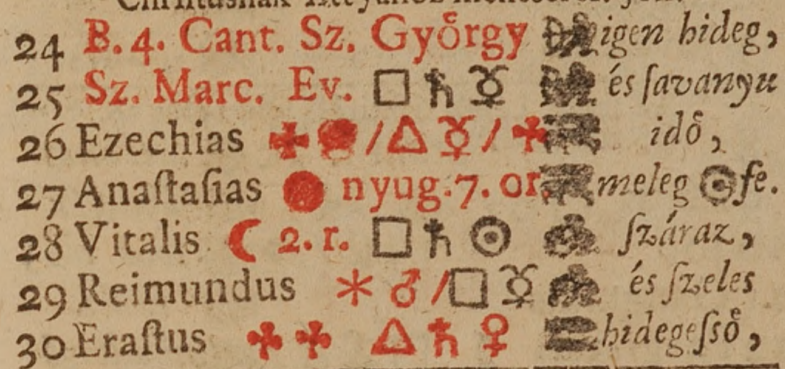 24 B. 4. Cant. Sz. Győrgy igen hideg,
25 Sz. Marc. Ev. □ ♄ ☿ és ſavanyu
26 Ezechias ✠ ● / △ ☿ / ✠ idő,
27 Anaſtaſias ● nyug. 7. or. meleg ☉ fe.
28 Vitalis ☾ 2. r. □ ♄ ☉ ſzáraz,
29 Reimundus ⚹ ♂ / □ ☿ és ſzeles
30 Eraſtus ✠ ✠ △ ♄ ♀ hidegeſső,